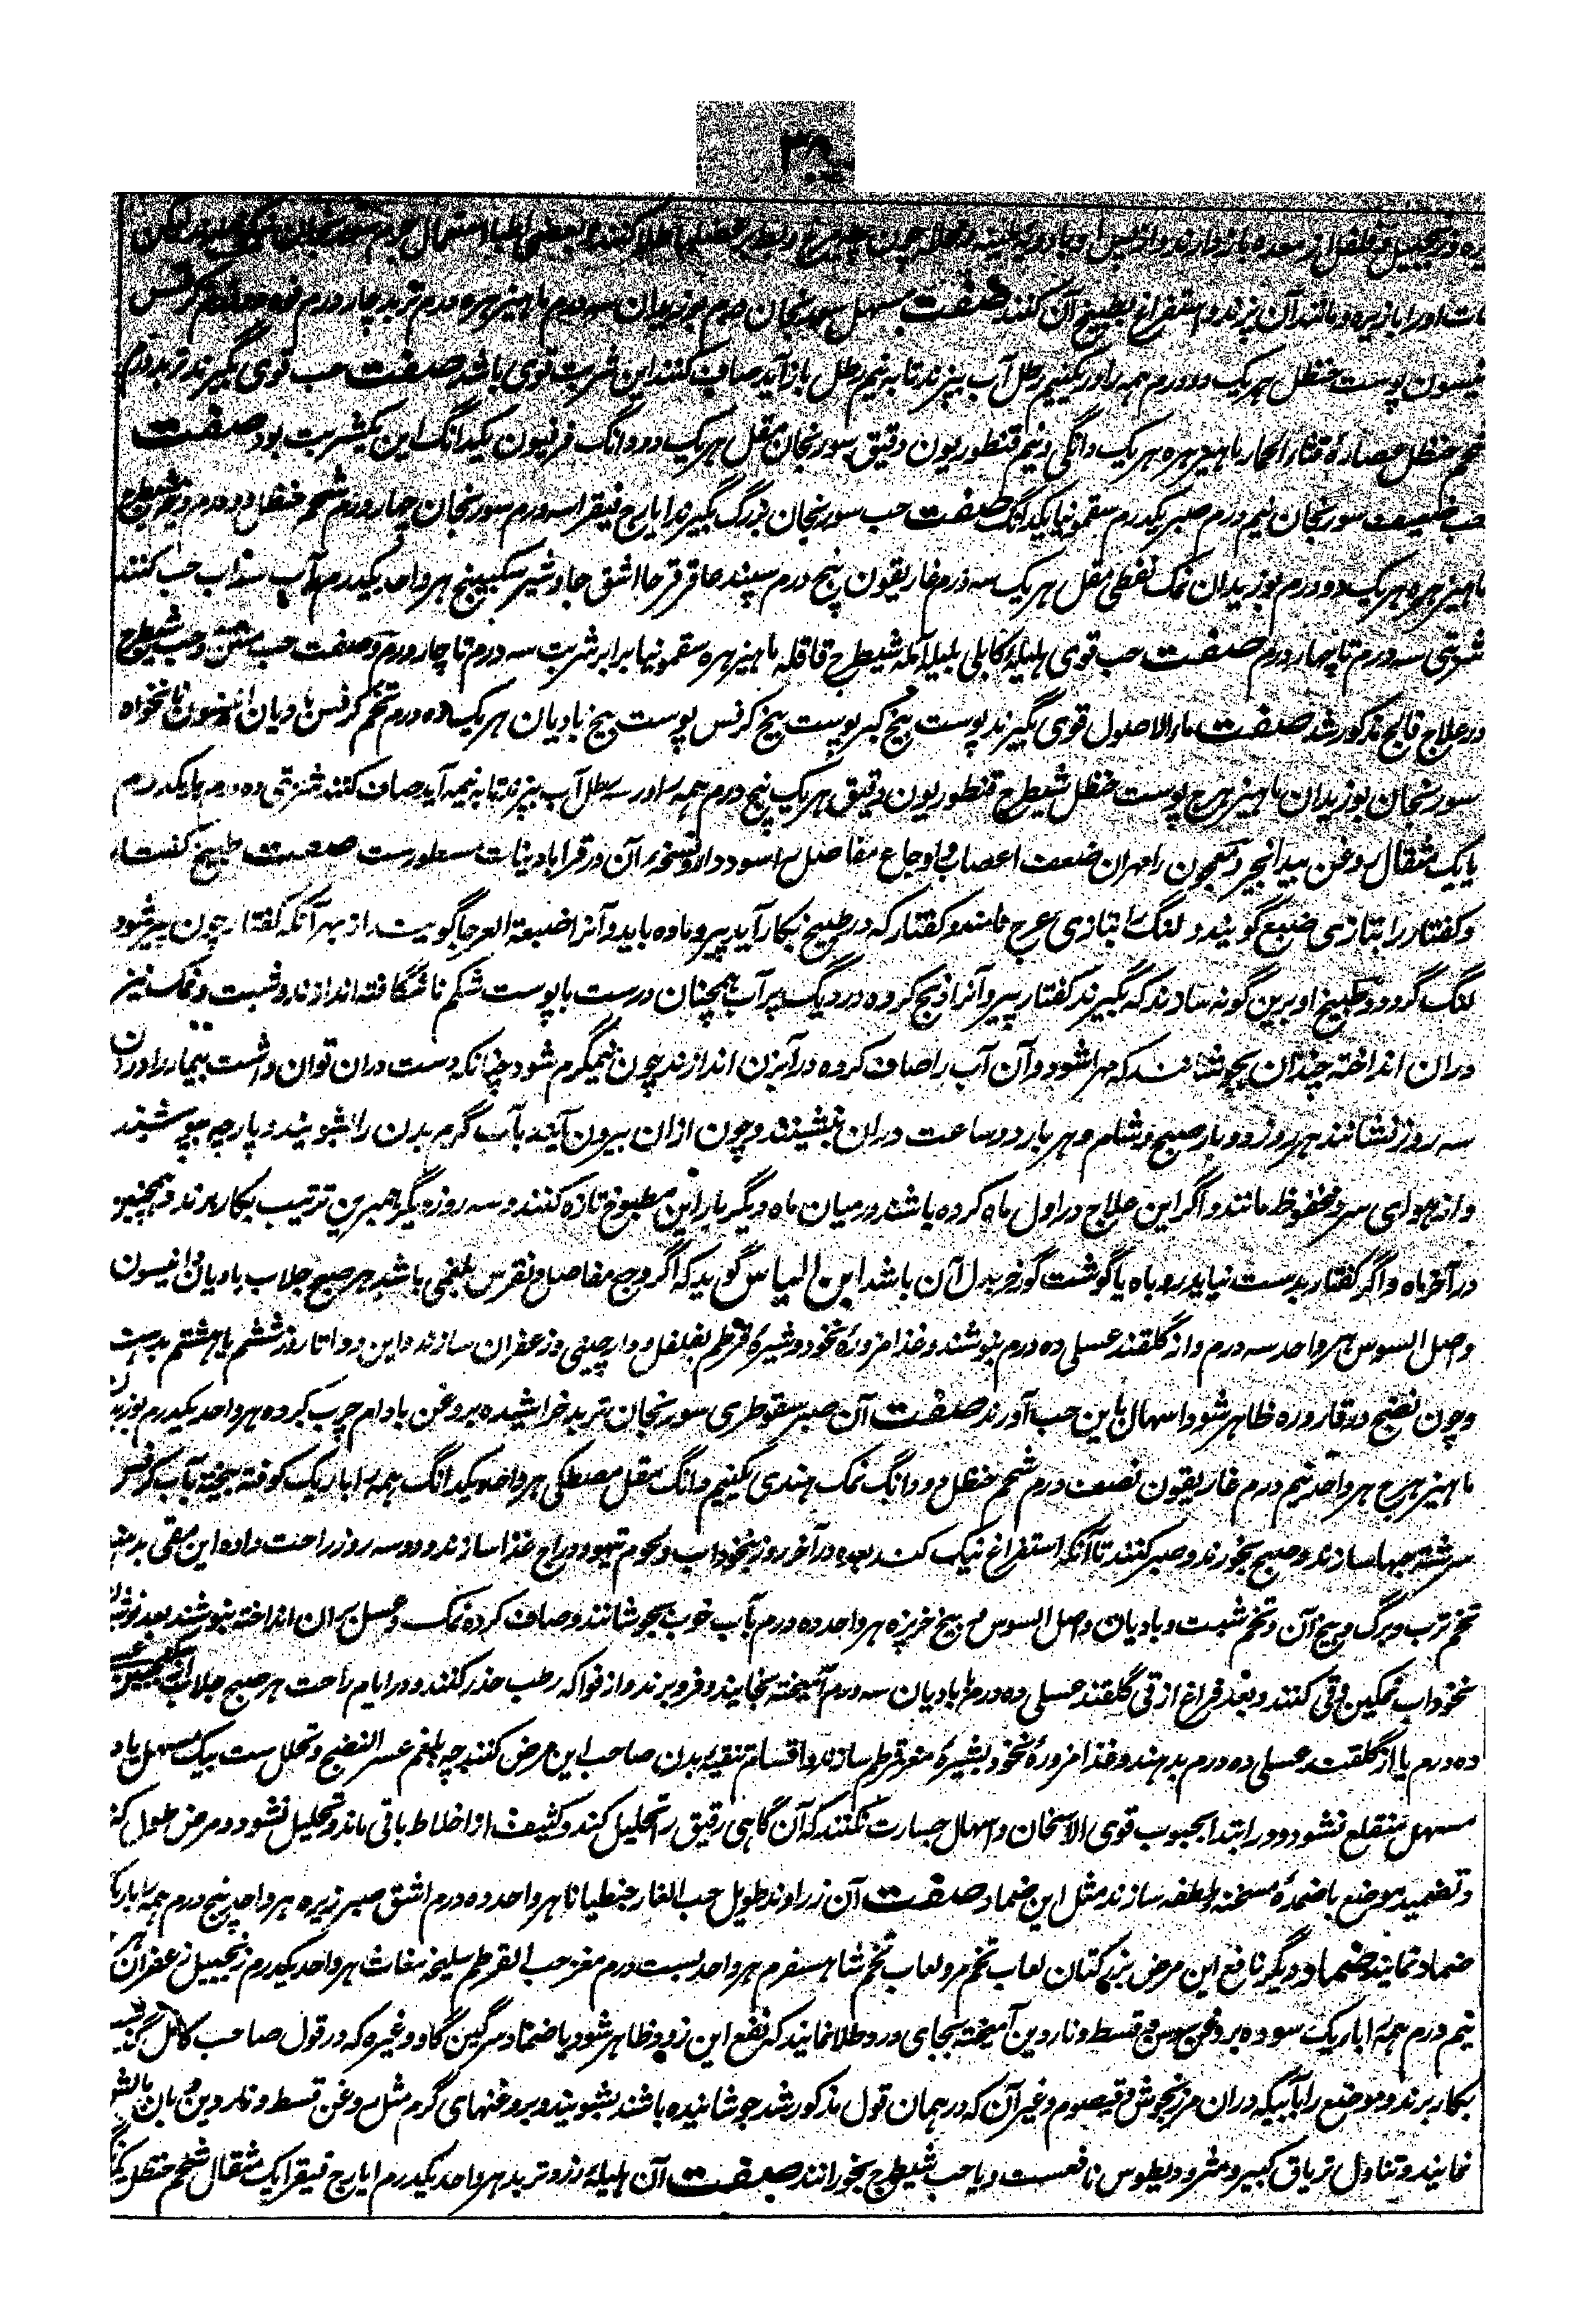 زیره و زنجبیل و فلفل از معده باز دارند و
بات او را با زیره و مانند آن پزند و استفراغ بطبیخ آن کنند صفت مسهل سورنجان درم بوزیدان سه درم ماهیزهره درم تربد چار درم
انیسون پوست حنظل هر یک دو درم همه را در یکنیم رطل آب بپزند تا به نیم رطل باز آید صاف کنند این شربت قوی باشد صفت حب قوی بگیرند تربد درم
شحم حنظل عصارۀ قثاء الحمار ماهیزهره هر یک دانگی و نیم قنطوریون دقیق سورنجان مقل هر یک دو دانگ فرفیون یکدانگ این یکشربت بود صفت
حب ضعیف سورنجان نیم درم صبر یکدرم سقمونیا یکدانگ صفت حب سورنجان بزرگ بگیرند ایارج فیقرا سه درم سورنجان چهار درم شحم حنظل دو درم و نیم شیطرج
ماهیزهره هر یک دو درم بوزیدان نمک نفطی مقل هر یک سه درم غاریقون پنج درم سپند عاقرقرحا اشق جاوشیر سکبینج هر واحد یکدرم بآب سداب حب کنند
شربتی سه درم تا چهار درم صفت حب قوی هلیلۀ کابلی بلیله آمله شیطرج قاقله ماهیزهره سقمونیا برابر شربت سه درم تا چار درم و صفت حب منتن و حب شیطرج
در علاج فالج مذکور شد صفت ماء الاصول قوی بگیرند پوست بیخ کبر پوست بیخ کرفس پوست بیخ بادیان هر یک ده درم تخم کرفس بادیان انیسون نانخواه
سورنجان بوزیدان ماهیزهرج پوست حنظل شیطرج قنطوریون دقیق هر یک پنج درم همه را در سه رطل آب بپزند تا به نیمه آید صاف کنند شربتی ده درم با یکدرم
یا یک مثقال روغن بیدانجیر و معجون رامهران ضعف اعصاب و اوجاع مفاصل را سود دارد و نسخه آن در قرابادینات مسطورست صفت طبیخ کفتار
و کفتار را بتازی ضبع گویند و لنگ را بتازی اعرج نامند و کفتار که در طبیخ بکار آید پیر و ماده باید و آنرا ضبعة العرجا گویند از بهر آنکه کفتار چون پیر شود
لنگ گردد و طبیخ او برین گونه سازند که بگیرند کفتار پیر و آنرا ذبح کرده در دیگ پر آب همچنان درست با پوست شکم ناشگافته اندازند و شبت و نمک نیز
دران انداخته چندان بجوشانند که مهرا شود و آن آب را صاف کرده در آبزن اندازند چون نیمگرم شود چنانکه دست دران توان داشت بیمار را دران
سه روز نشانند هر روز دو بار صبح و شام و هر بار دو ساعت دران بنشینند و چون ازان بیرون آیند بآب گرم بدن را بشویند و پارچه بپوشند
و از هوای سرد محفوظ مانند و اگر این علاج در اول ماه کرده باشند در میان ماه دیگر بار این مطبوخ تازه کنند و سه روز دیگر همبرین ترتیب بکار برند و همچنین
در آخر ماه و اگر کفتار بدست نیاید روباه یا گوشت گورخر بدل آن باشد ابن الیاس گوید که اگر وجع مفاصل و نقرس بلغمی باشد هر صبح جلاب بادیان و انیسون
و اصل السوس هر واحد سه درم و از گلقند عسلی ده درم بنوشند و غذا مزورۀ نخود و شیرۀ قرطم بفلفل و دارچینی و زعفران سازند و این دوا تا روز ششم یا هشتم بدهند
و چون نضج در قاروره ظاهر شود اسهال باین حب آورند صفت آن صبر سقوطری سورنجان تربد خراشیده بروغن بادام چرب کرده هر واحد یکدرم بوزیدان
ماهیزهرج هر واحد نیم درم غاریقون نصف درم شحم حنظل دو دانگ نمک هندی یکنیم دانگ مقل مصطکی هر واحد یکدانگ همه را باریک کوفته بیخته بآب کرفس
سرشته حبها سازند و صبح بخورند و صبر کنند تا آنکه استفراغ نیک کند بعده در آخر روز نخوداب و لحوم تیهو و دراج غذا سازند و دو سه روز راحت داده این مقی بدهند
تخم ترب و برگ و بیخ آن و تخم شبت و بادیان و اصل السوس و بیخ خرپزه هر واحد ده درم بآب خوب بجوشانند و صاف کرده نمک و عسل بران انداخته بنوشند بعد نوشیدن
نخوداب نمکین و قی کنند و بعد فراغ از قی گلقند عسلی ده درم با بادیان سه درم آمیخته بخایند و فرو برند و از فواکه رطب حذر کنند و در ایام راحت هر صبح جلاب از
ده درم یا از گلقند عسلی ده درم بدهند و غذا مزورۀ نخود بشیرۀ مغز قرطم سازند و اقسام تنقیۀ بدن صاحب این مرض کنند چه بلغم عسر النضج و تحلل ست بیک مسهل یا دو
مسهل منقلع نشود و در ابتدا بحبوب قوی الاسخان و اسهال جسارت نکنند که آن گاهی رقیق را تحلیل کند و کثیف از اخلاط باقی ماند و تحلیل نشود و مرض طول کند
و تضمید موضع باضمدۀ مسخنه و ملطفه سازند مثل این ضماد صفت آن زراوند طویل حب الغار جنطیانا هر واحد ده درم اشق صبر زیره هر واحد پنج درم همه را باریک
ضماد نمایند ضماد دیگر نافع این مرض بزر کتان لعاب تخم مرو لعاب تخم شاهسفرم هر واحد بست درم مغز حب القرطم سلیخه مغاث هر واحد یکدرم زنجبیل زعفران هر
نیم درم همه را باریک سوده بروغن سوسن و قسط و ناردین آمیخته بجای درد طلا نمایند که نفع این زود ظاهر شود یا ضماد سرگین گاو و غیره که در قول صاحب کامل گذشت
بکار برند و موضع را بآبیکه دران مرزنجوش و قیصوم و غیر آن که در همان قول مذکور شد جوشانیده باشند بشویند و بروغنهای گرم مثل روغن قسط و ناردین و بان مالش
نمایند و تناول تریاق کبیر و مثرودیطوس نافعست و یا حب شیطرج بخورانند صفت آن هلیلۀ زرد و تربد هر واحد یکدرم ایارج فیقرا یک مثقال شحم حنظل